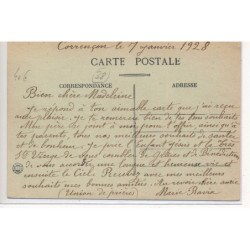 Corrençon le 7 janvier 1928
CARTE POSTALE
CORRESPONDANCE
ADRESSE
(38)
Bien chère Madeleine
Je répond à ton aimable carte que j'ai reçu
avec plaisir. Je te remercie bien de tes bons souhaits
Mon père se joint à moi pour t'offrir ainsi qu'à
tes parents, tous nos meilleurs souhaits de santé
et de bonheur. Je prie petit Enfant Jésus et la très
Ste Vierge de vous combler de grâces et de Bénédictions
de vous accorder une longue et heureuse vie et
ensuite le Ciel. Recevez avec mes meilleurs
souhaits mes bonnes amitiés. Au revoir chère amie
(Union de prières) Marie